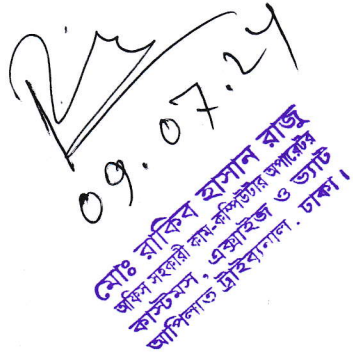 09.07.24
মোঃ রাকিব হাসান রাজু
অফিস সহকারী কাম-কম্পিউটার অপারেটর
কাস্টমস, এক্সাইজ ও ভ্যাট
আপিলাত ট্রাইব্যুনাল, ঢাকা।